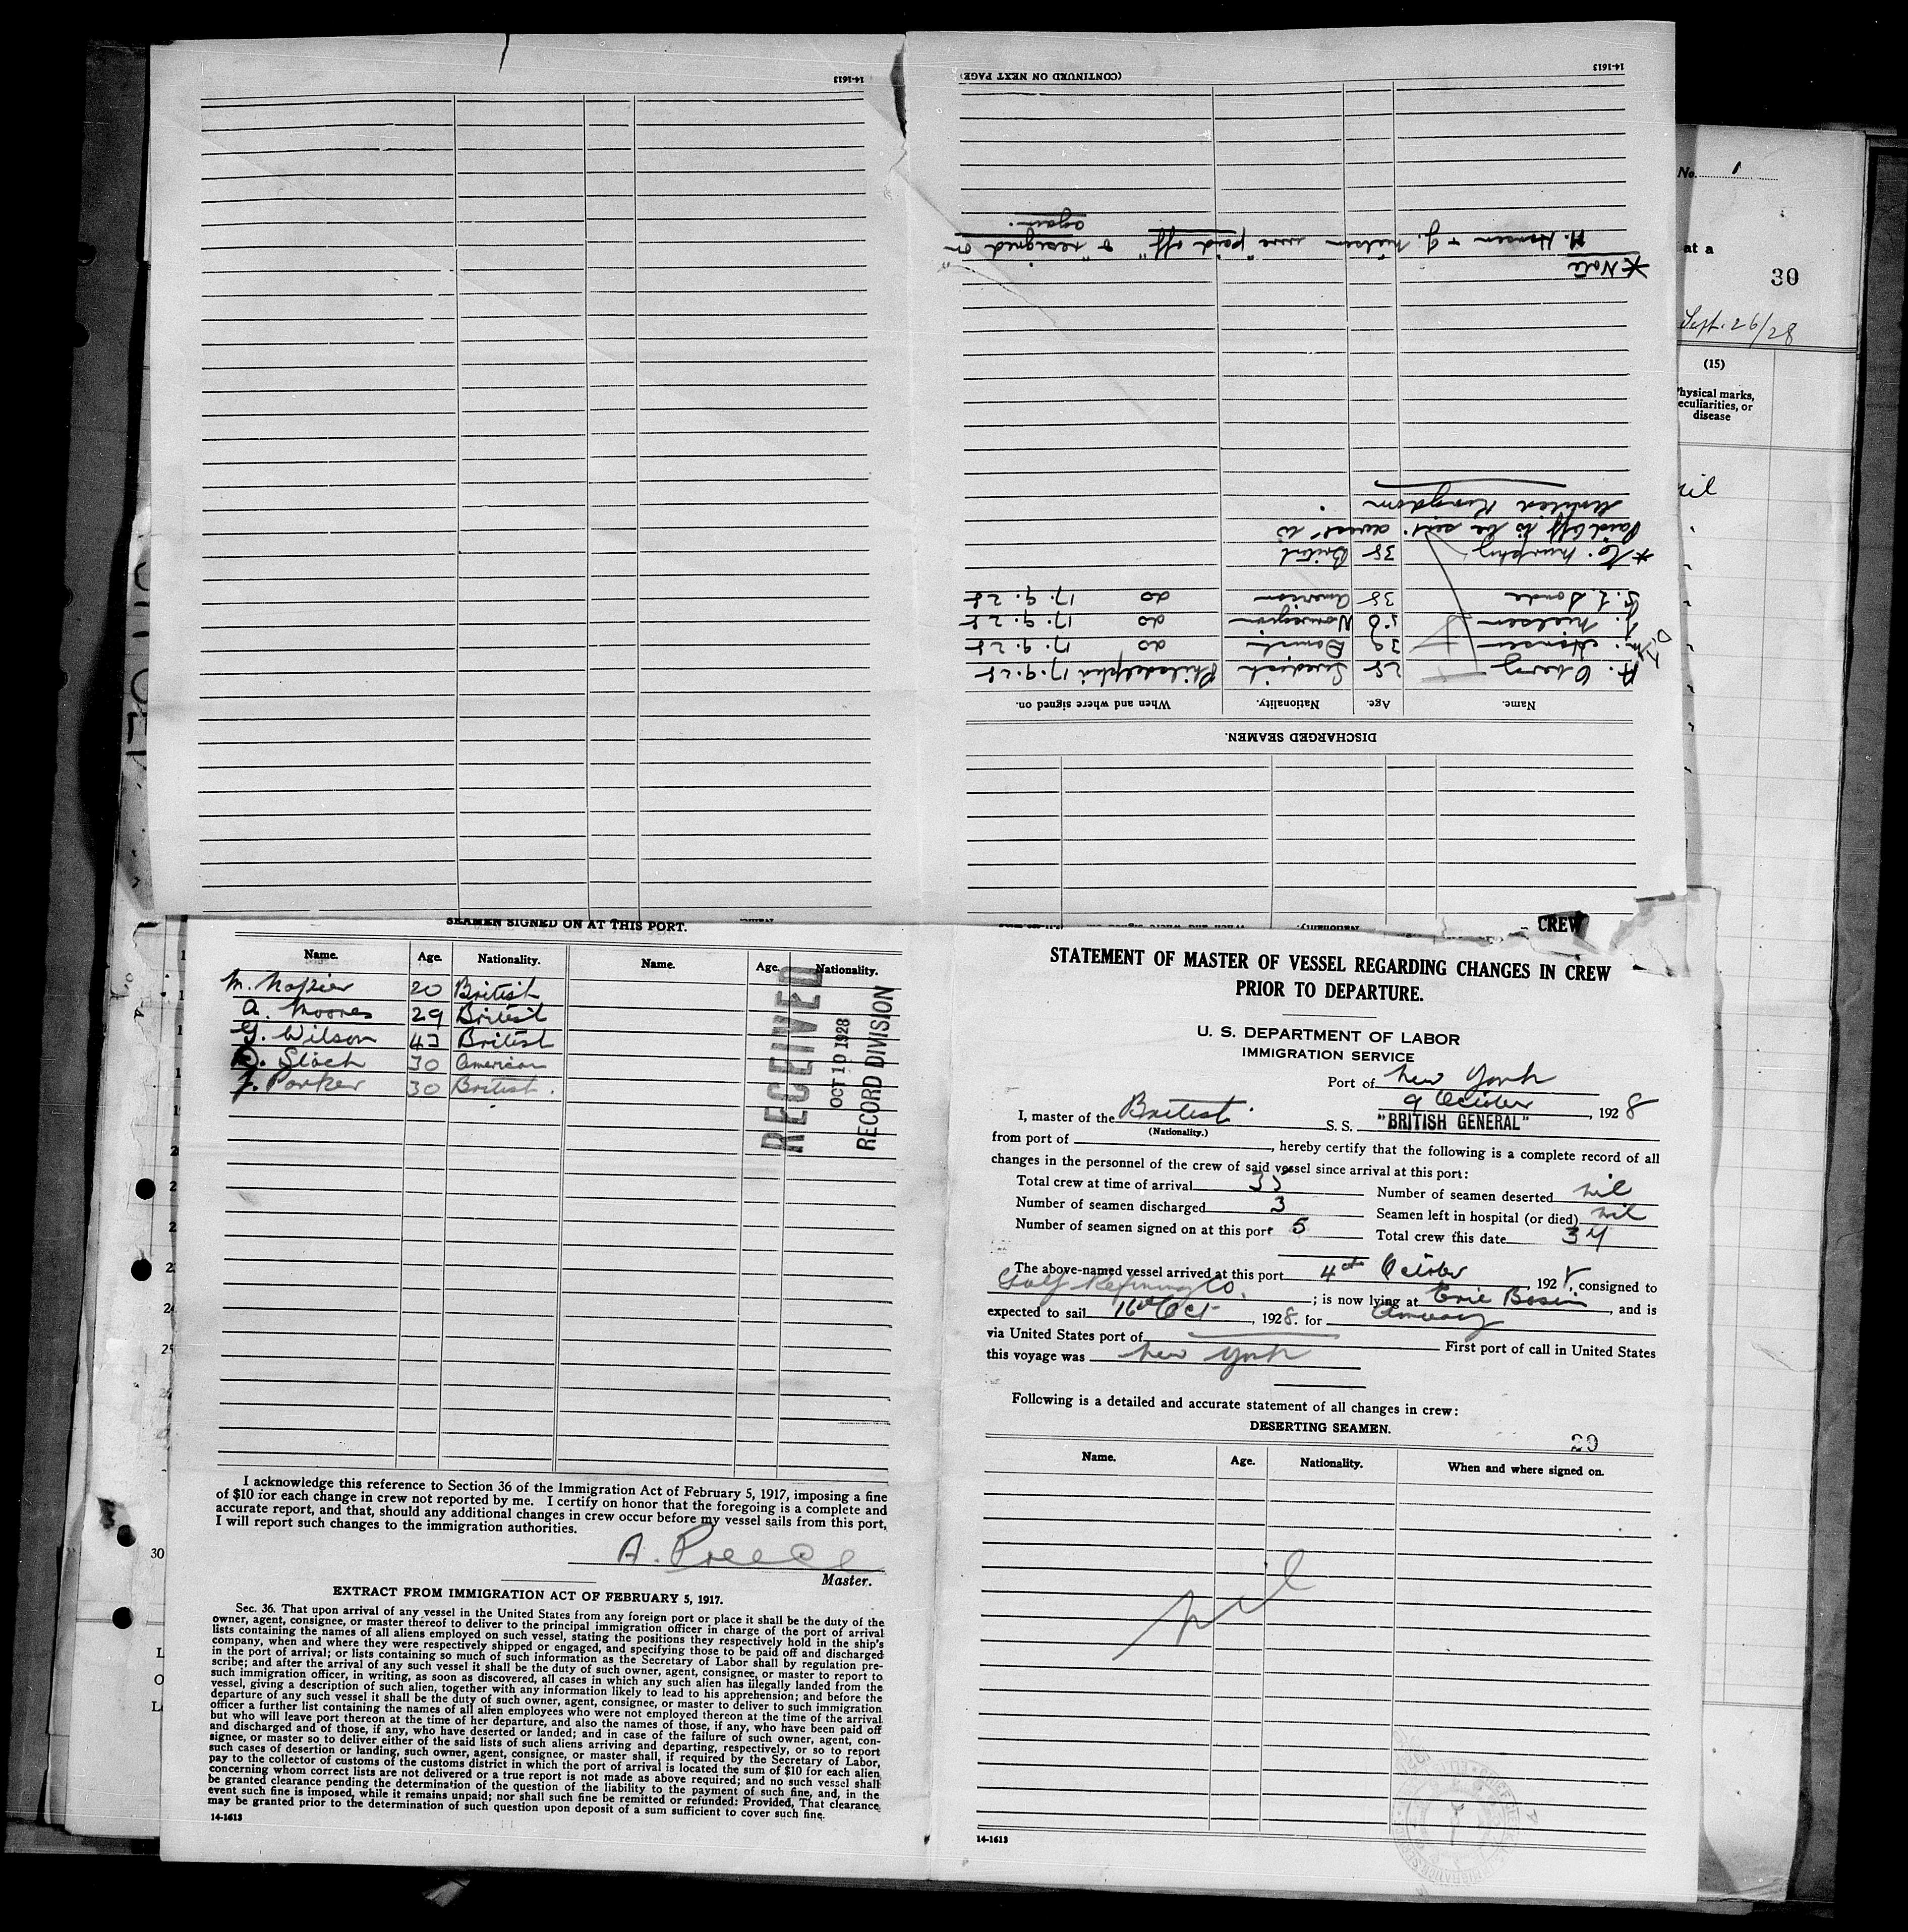 14-1613
(CONTINUED ON NEXT PAGE)
14-1613
*Note
H. Hansen & J. Nielsen were "paid off" & "resigned on"
again.
DISCHARGED SEAMEN.
Name. Age. Nationality. When and where signed on.
A. Oberg 28 Swedish Philadelphia 17.9.28
Hansen 29 Danish do 17.9.28
J. Nielsen Norwegian do 17.9.28
38 American do 17.9.28
* Murphy 38 British
Paid off to be sent to
United Kingdom
No. 1
at a
30
Sept. 26/28
(15)
Physical marks,
peculiarities, or
disease
nil
SEAMEN SIGNED ON AT THIS PORT.
Name. Age. Nationality. Name. Age. Nationality.
M. Napier 20 British
A. Moores 29 British
G. Wilson 43 British
D. Stach 30 American
J. Parker 30 British.
RECEIVED
OCT 10 1928
RECORD DIVISION
I acknowledge this reference to Section 36 of the Immigration Act of February 5, 1917, imposing a fine
of $10 for each change in crew not reported by me. I certify on honor that the foregoing is a complete and
accurate report, and that, should any additional changes in crew occur before my vessel sails from this port,
I will report such changes to the immigration authorities.
A. Preece
Master.
EXTRACT FROM IMMIGRATION ACT OF FEBRUARY 5, 1917.
Sec. 36. That upon arrival of any vessel in the United States from any foreign port or place it shall be the duty of the
owner, agent, consignee, or master thereof to deliver to the principal immigration officer in charge of the port of arrival
lists containing the names of all aliens employed on such vessel, stating the positions they respectively hold in the ship's
company, when and where they were respectively shipped or engaged, and specifying those to be paid off and discharged
in the port of arrival; or lists containing so much of such information as the Secretary of Labor shall by regulation pre-
scribe; and after the arrival of any such vessel it shall be the duty of such owner, agent, consignee, or master to report to
such immigration officer, in writing, as soon as discovered, all cases in which any such alien has illegally landed from the
vessel, giving a description of such alien, together with any information likely to lead to his apprehension; and before the
departure of any such vessel it shall be the duty of such owner, agent, consignee, or master to deliver to such immigration
officer a further list containing the names of all alien employees who were not employed thereon at the time of the arrival
but who will leave port thereon at the time of her departure, and also the names of those, if any, who have been paid off
and discharged and of those, if any, who have deserted or landed; and in case of the failure of such owner, agent, con-
signee, or master so to deliver either of the said lists of such aliens arriving and departing, respectively, or so to report
such cases of desertion or landing, such owner, agent, consignee, or master shall, if required by the Secretary of Labor,
pay to the collector of customs of the customs district in which the port of arrival is located the sum of $10 for each alien
concerning whom correct lists are not delivered or a true report is not made as above required; and no such vessel shall
be granted clearance pending the determination of the question of the liability to the payment of such fine, and, in the
event such fine is imposed, while it remains unpaid; nor shall such fine be remitted or refunded: Provided, That clearance
may be granted prior to the determination of such question upon deposit of a sum sufficient to cover such fine.
14-1613
CREW
STATEMENT OF MASTER OF VESSEL REGARDING CHANGES IN CREW
PRIOR TO DEPARTURE.
U. S. DEPARTMENT OF LABOR
IMMIGRATION SERVICE
Port of New York
9 October, 1928
I, master of the British S. S. "BRITISH GENERAL"
(Nationality.)
from port of , hereby certify that the following is a complete record of all
changes in the personnel of the crew of said vessel since arrival at this port:
Total crew at time of arrival 35 Number of seamen deserted nil
Number of seamen discharged 3 Seamen left in hospital (or died) nil
Number of seamen signed on at this port 5 Total crew this date 34
The above-named vessel arrived at this port 4th October, 1928, consigned to
Gulf Refining Co. ; is now lying at Erie Basin, and is
expected to sail 16th Oct, 1928. for
via United States port of First port of call in United States
this voyage was New York
Following is a detailed and accurate statement of all changes in crew:
DESERTING SEAMEN.
29
Name. Age. Nationality. When and where signed on.
nil
14-1613